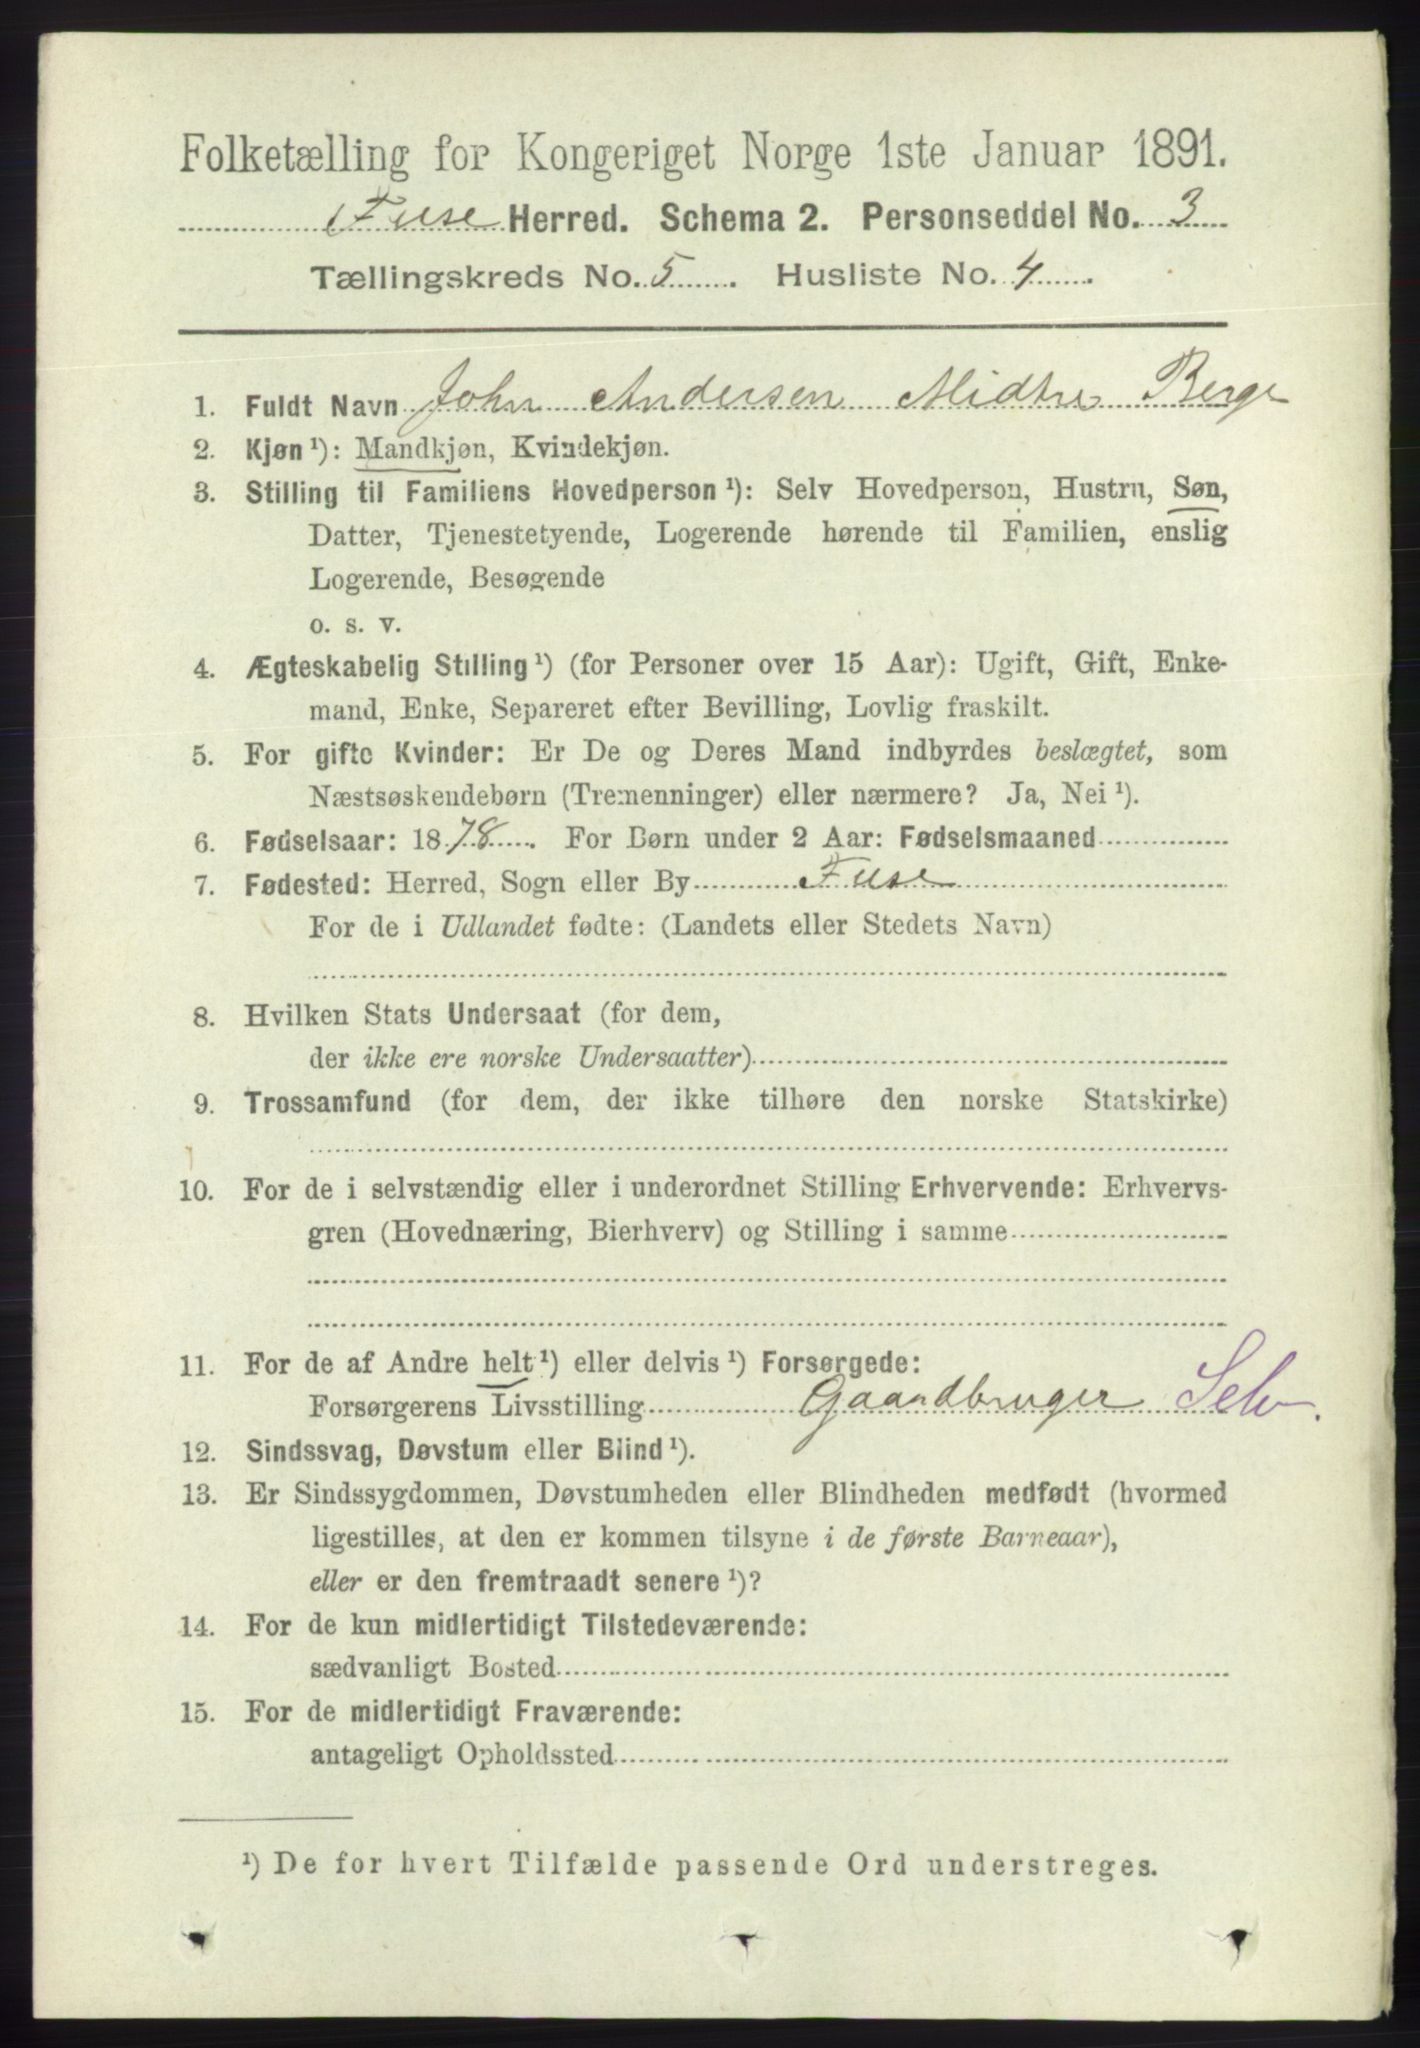 Folketælling for Kongeriget Norge 1ste Januar 1891.
Fuse Herred. Schema 2. Personseddel No. 3
Tællingskreds No. 5. Husliste No. 4.
1. Fuldt Navn John Andersen Midtre Berge
2. Kjøn ¹): Mandkjøn, Kvindekjøn.
3. Stilling til Familiens Hovedperson ¹): Selv Hovedperson, Hustru, Søn,
Datter, Tjenestetyende, Logerende hørende til Familien, enslig
Logerende, Besøgende
o. s. v.
4. Ægteskabelig Stilling ¹) (for Personer over 15 Aar): Ugift, Gift, Enke-
mand, Enke, Separeret efter Bevilling, Lovlig fraskilt.
5. For gifte Kvinder: Er De og Deres Mand indbyrdes beslægtet, som
Næstsøskendebørn (Tremenninger) eller nærmere? Ja, Nei ¹).
6. Fødselsaar: 1878. For Børn under 2 Aar: Fødselsmaaned
7. Fødested: Herred, Sogn eller By Fuse
For de i Udlandet fødte: (Landets eller Stedets Navn)
8. Hvilken Stats Undersaat (for dem,
der ikke ere norske Undersaatter)
9. Trossamfund (for dem, der ikke tilhøre den norske Statskirke)
10. For de i selvstændig eller i underordnet Stilling Erhvervende: Erhvervs-
gren (Hovednæring, Bierhverv) og Stilling i samme
11. For de af Andre helt ¹) eller delvis ¹) Forsørgede:
Forsørgerens Livsstilling Gaardbruger Selv.
12. Sindssvag, Døvstum eller Blind ¹).
13. Er Sindssygdommen, Døvstumheden eller Blindheden medfødt (hvormed
ligestilles, at den er kommen tilsyne i de første Barneaar),
eller er den fremtraadt senere ¹)?
14. For de kun midlertidigt Tilstedeværende:
sædvanligt Bosted
15. For de midlertidigt Fraværende:
antageligt Opholdssted
¹) De for hvert Tilfælde passende Ord understreges.